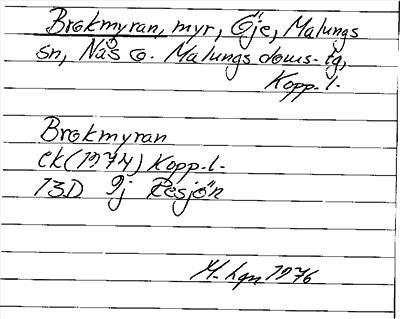 Brokmyran, myr, Öje, Malungs
sn, Nås o. Malungs doms. tg,
Kopp. l.
Brokmyran
Ek (1974) Kopp. l.
13D 9j Resjön
1976